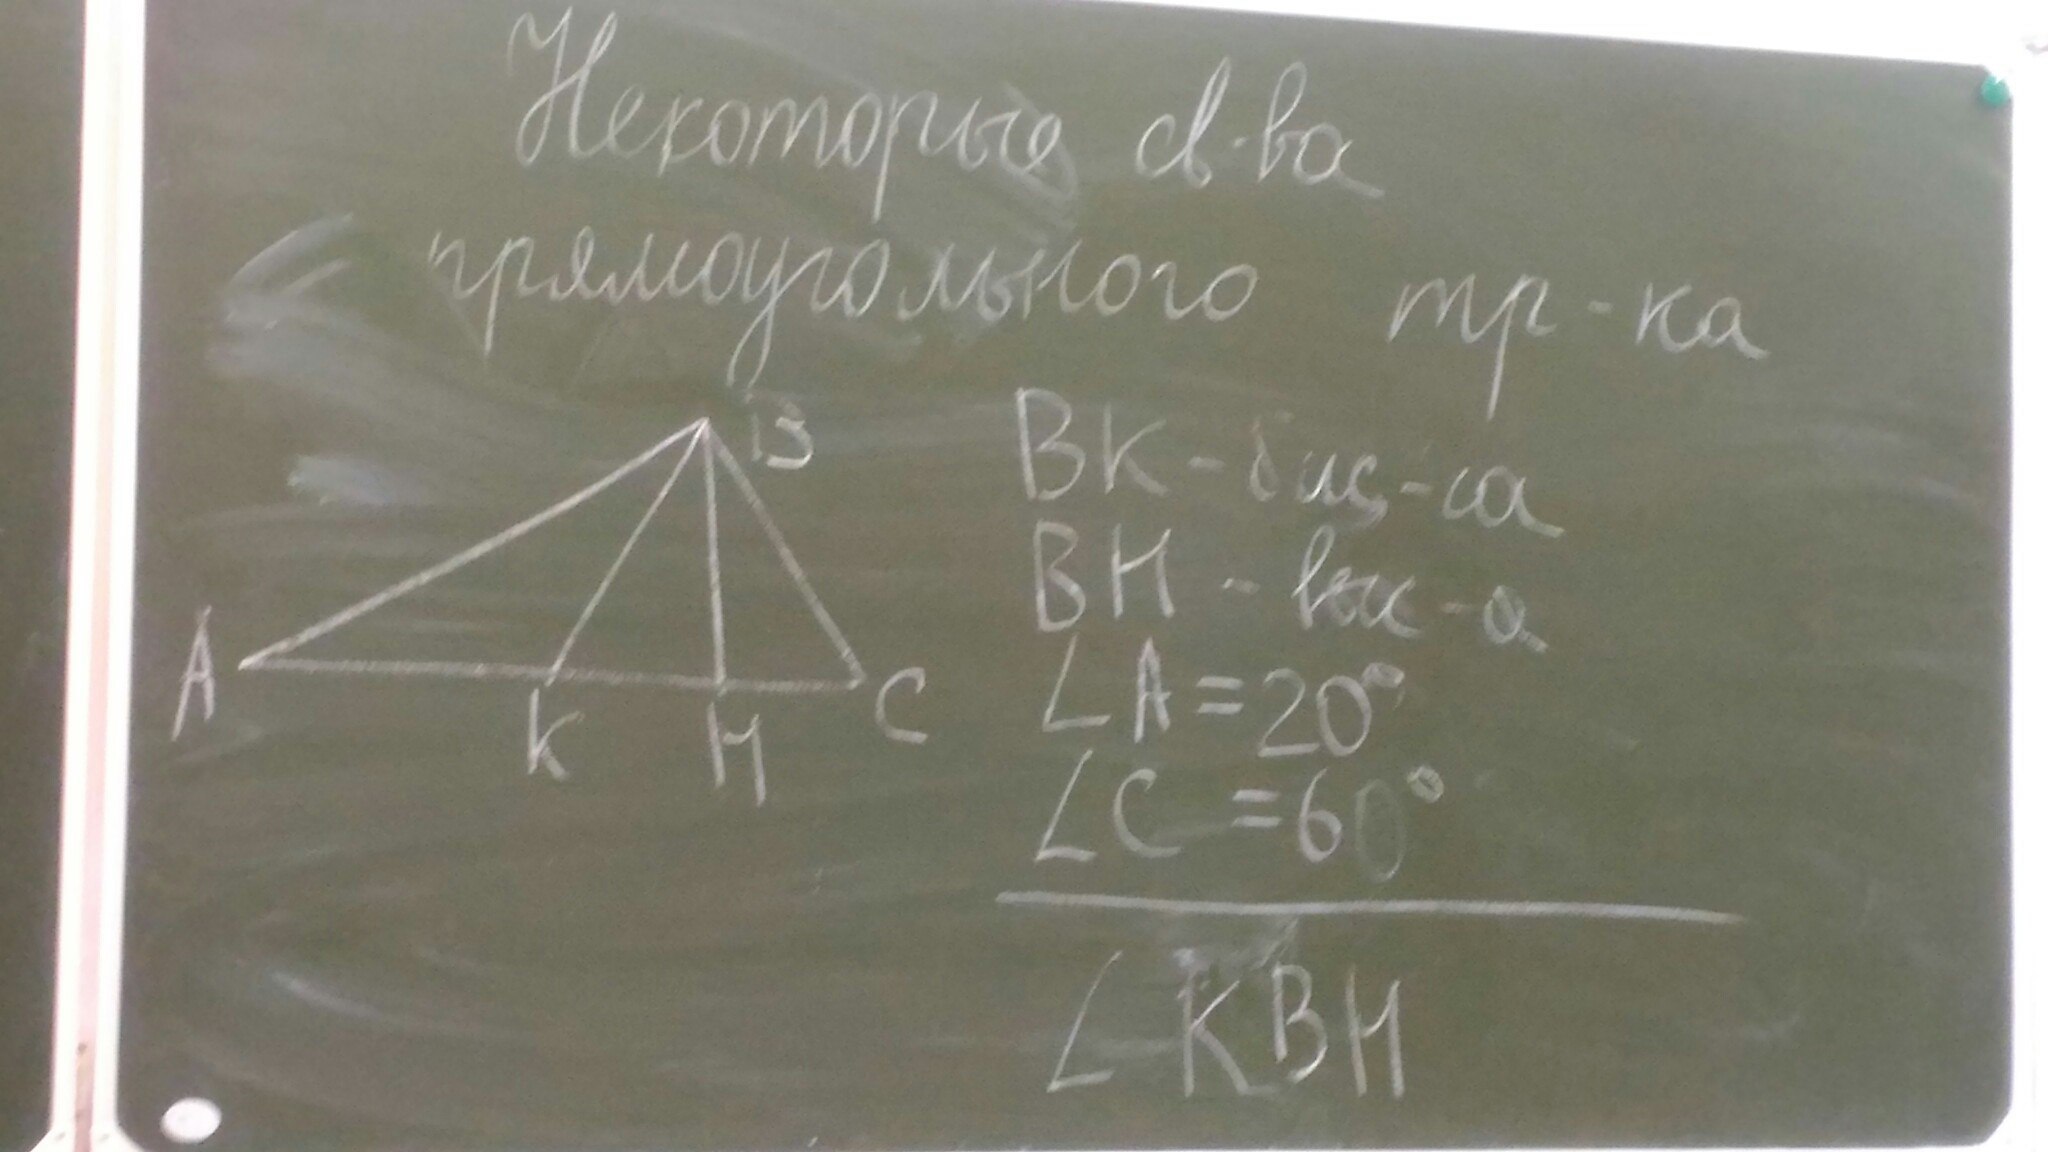 Некоторые св-ва
прямоугольного тр-ка
B
A
K
H
C
BK - бис-са
BH - выс-а
∠A = 20°
∠C = 60°
∠KBH